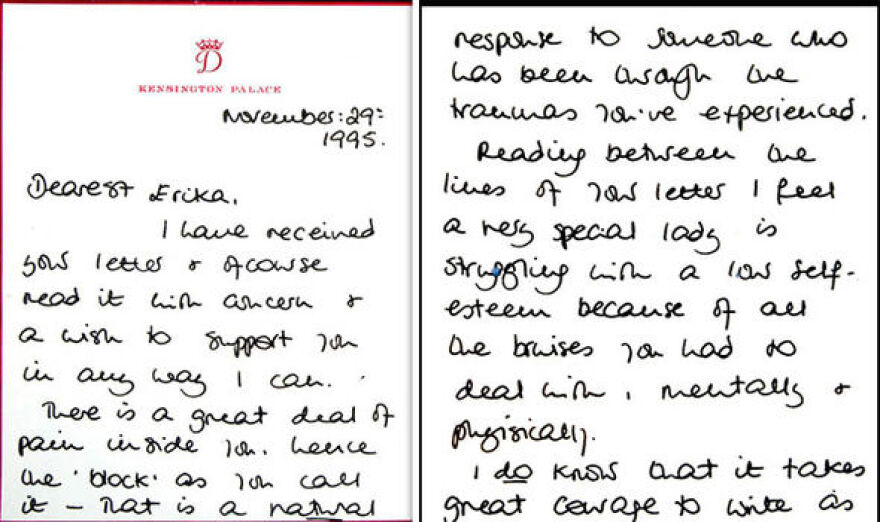 D
KENSINGTON PALACE
November: 29th
1995.
Dearest Erika,
I have received
your letter & ofcourse
read it with concern &
a wish to support you
in any way I can.
There is a great deal of
pain inside you. hence
the 'block' as you call
it - That is a natural
response to someone who
has been through the
traumas you've experienced.
Reading between the
lines of your letter I feel
a very special lady is
struggling with a low self-
esteem because of all
the bruises you had to
deal with, mentally &
physically.
I do know that it takes
great courage to write as